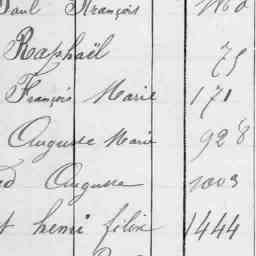 Paul François
Raphaël 75
François Marie 171
Auguste Marie 928
Auguste 1003
henri félix 1444